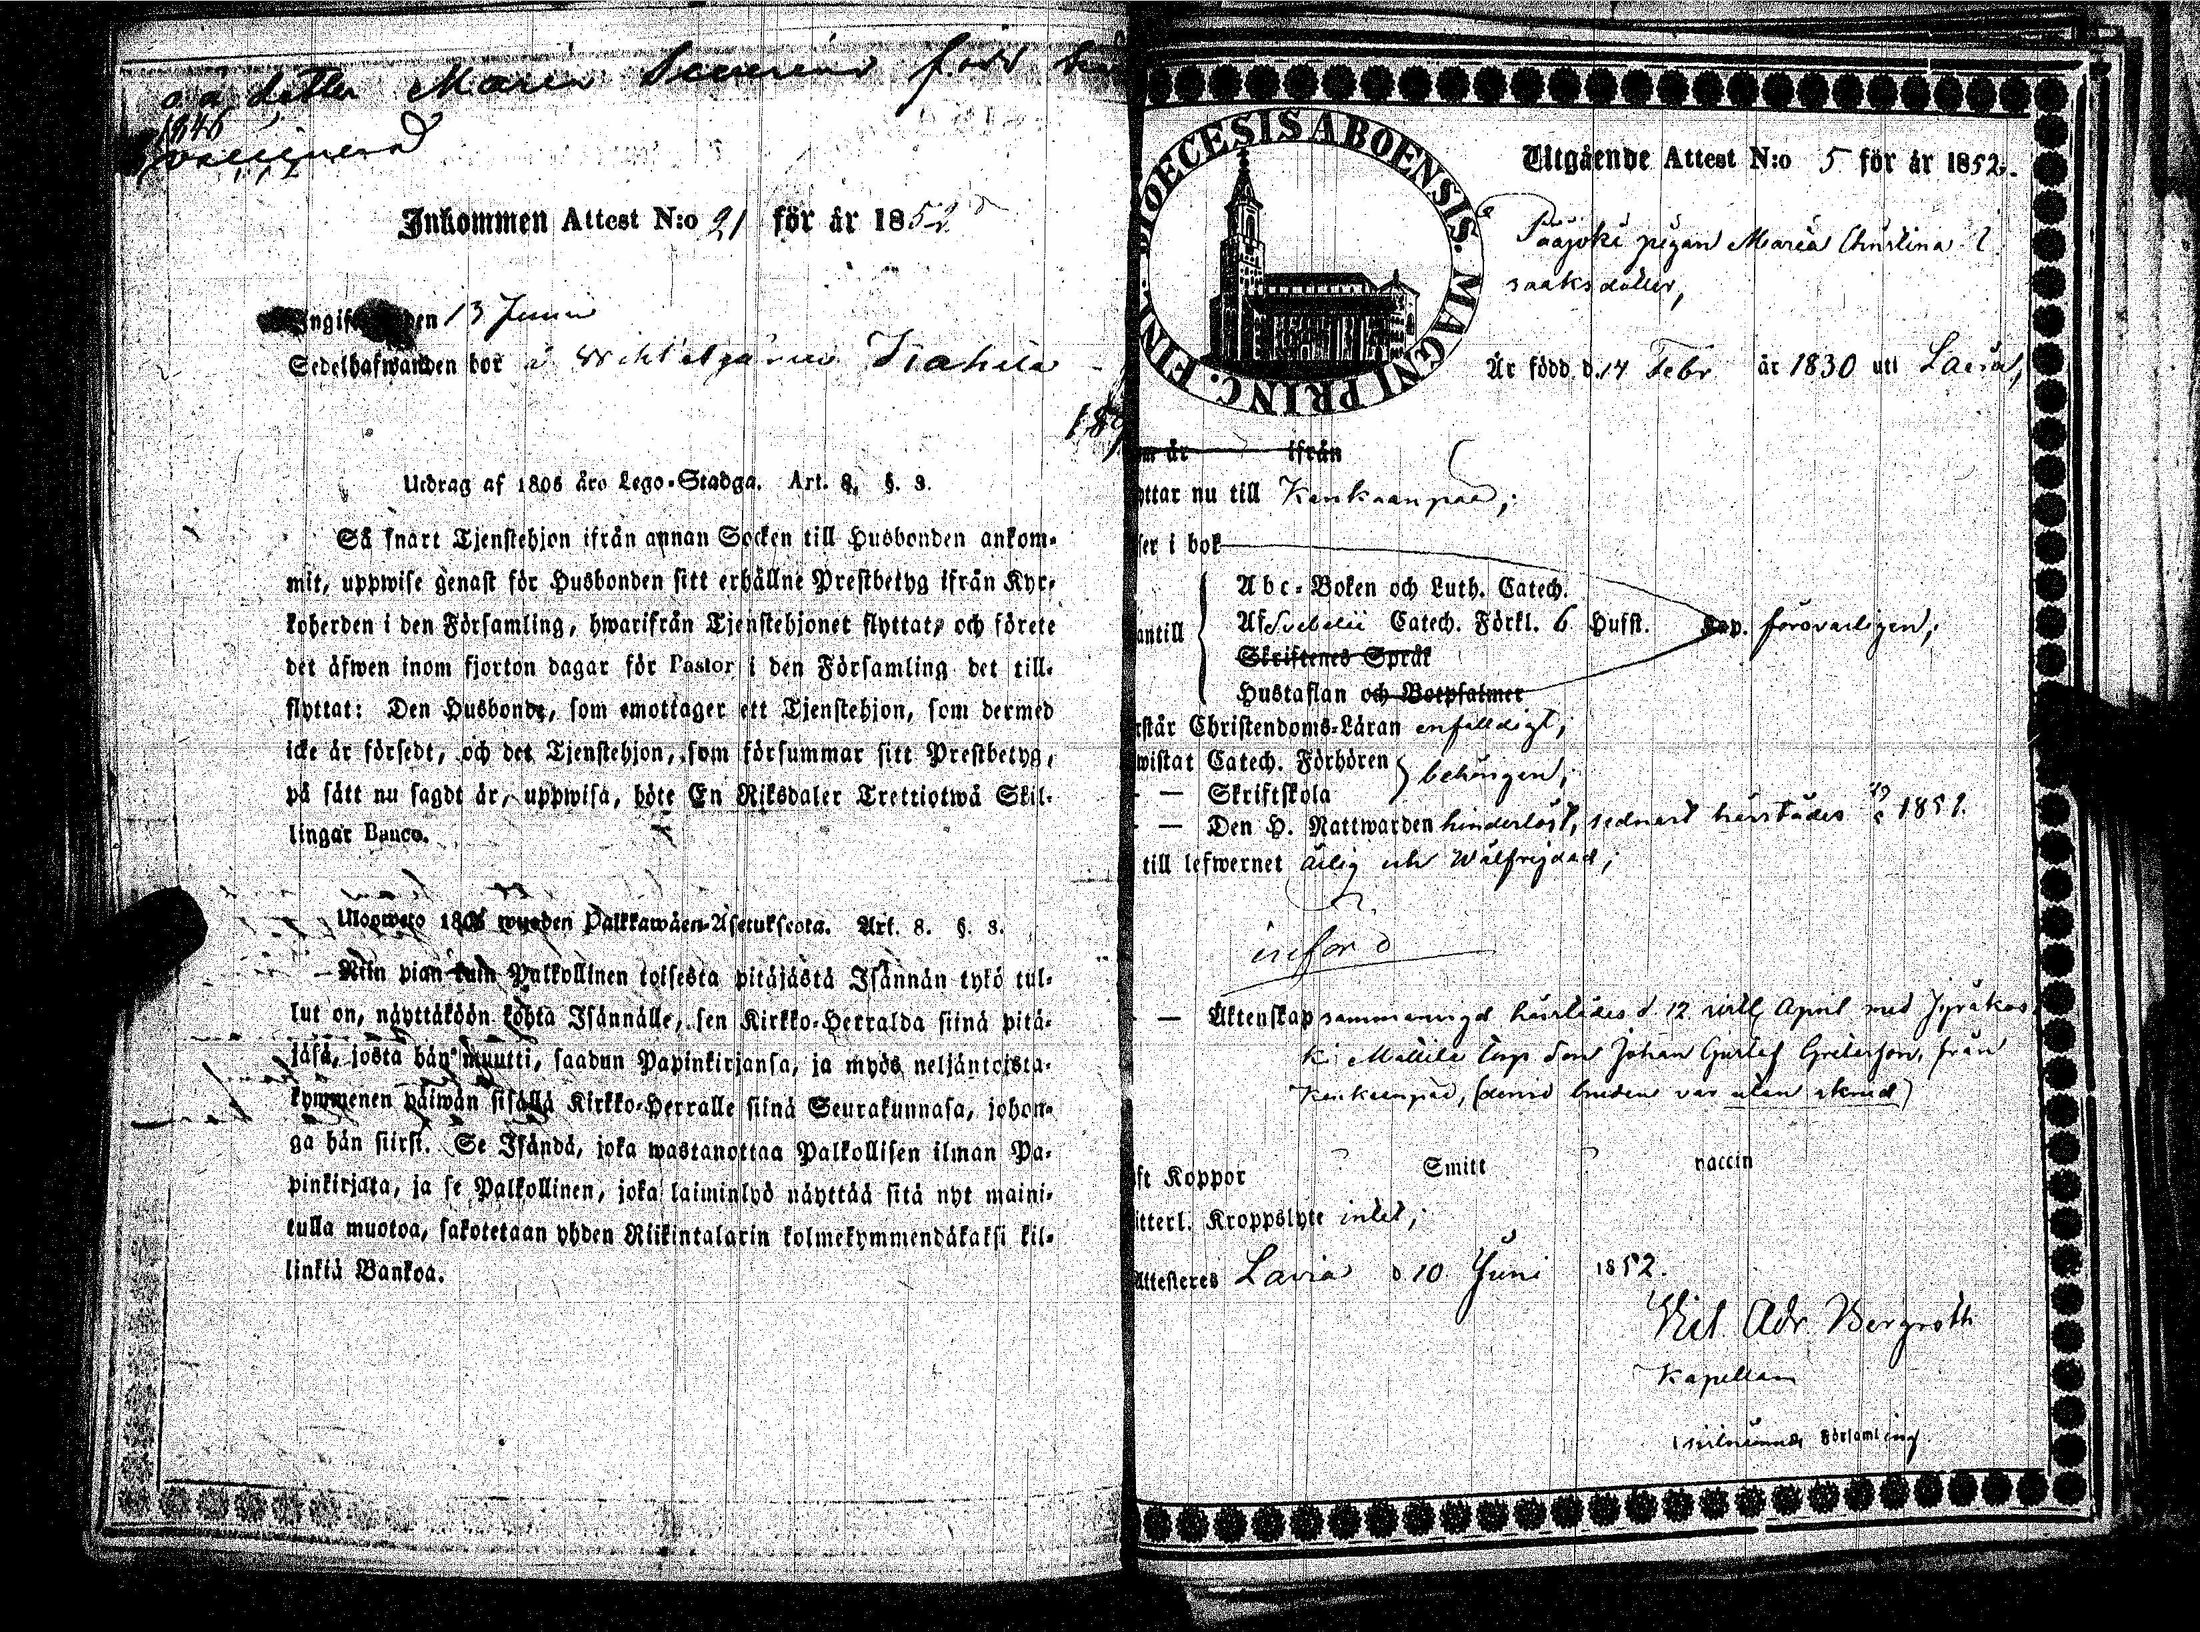 o. a. dotter Maria född
1846
Inkommen Attest N:o 21 för år 1852
ngif en 13 Junii
Sedelhafwanden bor i
Utdrag af 1805 års Lego-Stadga. Art. 8. §. 3.
Så snart Tjenstehjon ifrån annan Socken till Husbonden ankom-
mit, uppwise genast för Husbonden sitt erhållne Prestbetyg ifrån Kyr-
koherden i den Församling, hwarifrån Tjenstehjonet flyttat, och förete
det äfwen inom fjorton dagar för Pastor i den Församling det till-
flyttat: Den Husbonde, som emottager ett Tjenstehjon, som dermed
icke är försedt, och det Tjenstehjon, som försummar sitt Prestbetyg,
på sätt nu sagdt är, uppwisa, böte En Riksdaler Trettiotwå Skil-
lingar Banco.
Ulosweto 1805 wuoden Palkkawäen-Asetuksesta. Art. 8. §. 3.
Niin pian kuin Palkollinen toisesta pitäjästä Isännän tykö tul-
lut on, näyttäköön kohta Isännälle, sen Kirkko-Herralda siinä pitä-
jäsä, josta hän muutti, saadun Papinkirjansa, ja myös neljäntoista-
kymmenen päiwän sisällä Kirkko-Herralle siinä Seurakunnasa, johon-
ga hän siirsi. Se Isändä, joka wastanottaa Palkollisen ilman Pa-
pinkirjata, ja se Palkollinen, joka laiminlyö näyttää sitä nyt maini-
tulla muotoa, sakotetaan yhden Riikintalarin kolmekymmendäkaksi kil-
linkiä Bankoa.
DIOECESIS ABOENSIS. MAGNI PRINC. FINL.
Utgående Attest N:o 5 för år 1852.
Pääjoki pigan Maria Christina I
saaksdotter,
Är född d. 14 Febr år 1830 uti Lavia,
m år ifrån
yttar nu till Kankaanpää;
ser i bok
Abc-Boken och Luth. Catech.
antill Af Svebelii Catech. Förkl. 6 Hufst. Cap. försvarligen;
Skriftenes Språk
Hustaflan och Botpsalmer
rstår Christendoms-Läran enfalldigt;
wistat Catech. Förhören behörigen;
— Skriftskola
— Den H. Nattwarden hinderlöst, sednast härstädes 1851.
till lefwernet ärlig och wälfrejdad;
införd
— Äktenskap sammanvigd härstädes d. 12 sistl. April med
Mattila torp son Johan Gustaf från
Kankaanpää, (denna bruden var utan skrud)
ft Koppor Smitt vaccin
itterl. Kroppslyte intet;
Attesteres Lavia d 10 Juni 1852.
Adr. Bergroth
Kapellan
Församling.